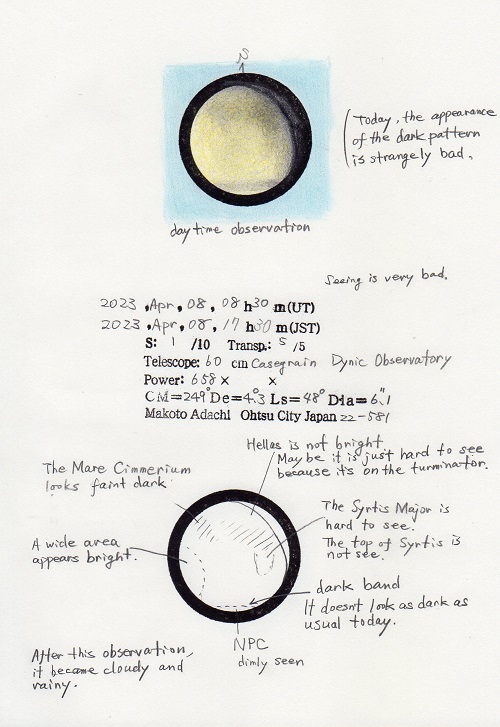 S
Today, the appearance
of the dark pattern
is strangely bad.
day time observation
Seeing is very bad.
2023 ,Apr, 08, 08 h30 m(UT)
2023 ,Apr, 08, 17 h30 m(JST)
S: 1 /10 Transp.: 5 /5
Telescope: 60 cm Casegrain Dynic Observatory
Power: 658 × ×
CM=249° De=4.°3 Ls=48° Dia=6."1
Makoto Adachi Ohtsu City Japan 22-581
Hellas is not bright
May be it is just hard to see
because it's on the turminator.
The Mare Cimmerium
looks faint dark
The Syrtis Major is
hard to see.
The top of Syrtis is
not see.
A wide area
appears bright.
dark band
It doesn't look as dark as
usual today.
NPC
dimly seen
After this observation,
it became cloudy and
rainy.